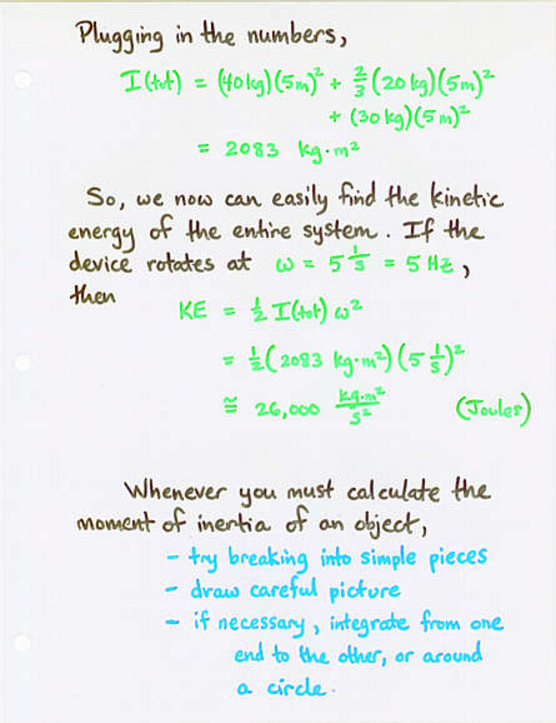 Plugging in the numbers,
I(tot) = (40kg)(5m)² + 2/3 (20 kg)(5m)²
+ (30 kg)(5m)²
= 2083 kg·m²
So, we now can easily find the kinetic
energy of the entire system. If the
device rotates at ω = 5 1/s = 5 Hz,
then
KE = 1/2 I(tot) ω²
= 1/2 (2083 kg·m²)(5 1/s)²
≅ 26,000 kg·m²/s² (Joules)
Whenever you must calculate the
moment of inertia of an object,
- try breaking into simple pieces
- draw careful picture
- if necessary, integrate from one
end to the other, or around
a circle.